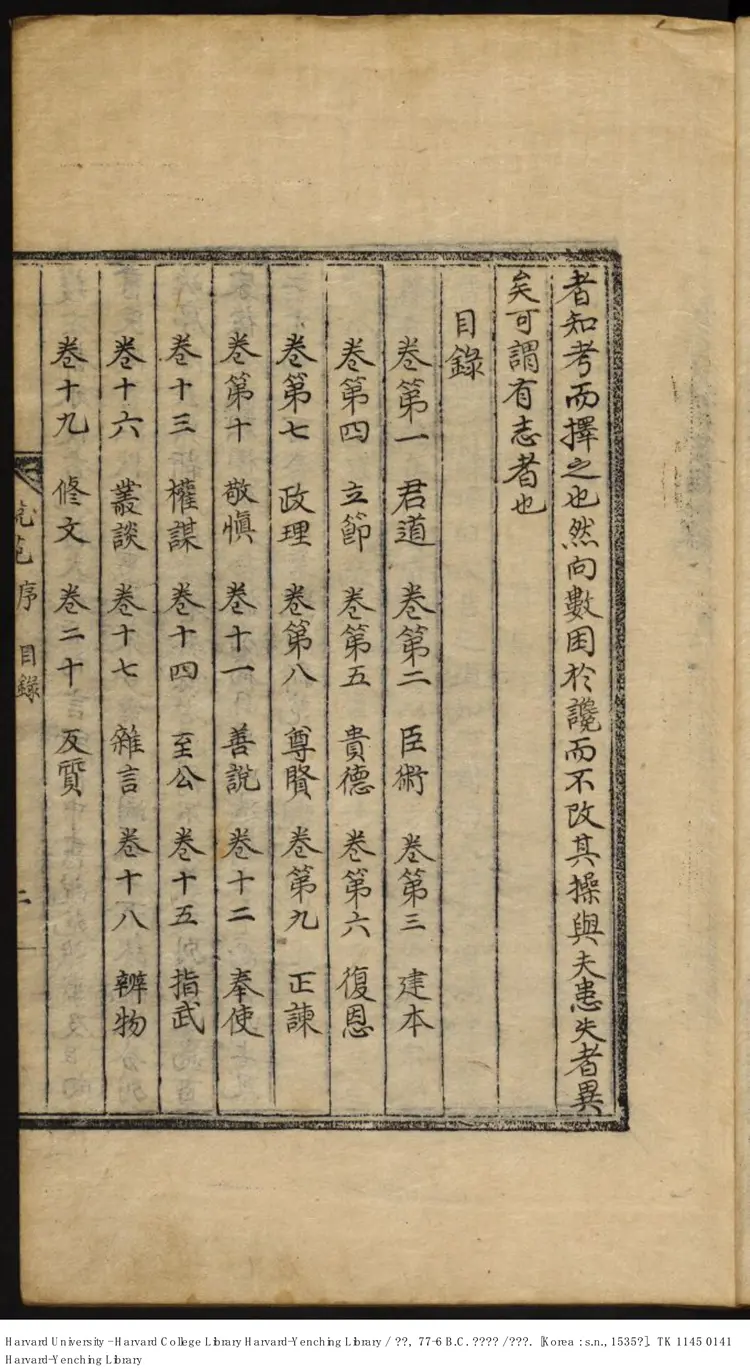 者知考而擇之也然向數困於讒而不改其操與夫患失者異
矣可謂有志者也
目錄
卷第一 君道 卷第二 臣術 卷第三 建本
卷第四 立節 卷第五 貴德 卷第六 復恩
卷第七 政理 卷第八 尊賢 卷第九 正諫
卷第十 敬慎 卷十一 善說 卷十二 奉使
卷十三 權謀 卷十四 至公 卷十五 指武
卷十六 叢談 卷十七 雜言 卷十八 辨物
卷十九 修文 卷二十 反質
說苑 序 目錄 二
Harvard University - Harvard College Library Harvard-Yenching Library / ??, 77-6 B.C. ???? / ???. [Korea : s.n., 1535?]. TK 1145 0141
Harvard-Yenching Library